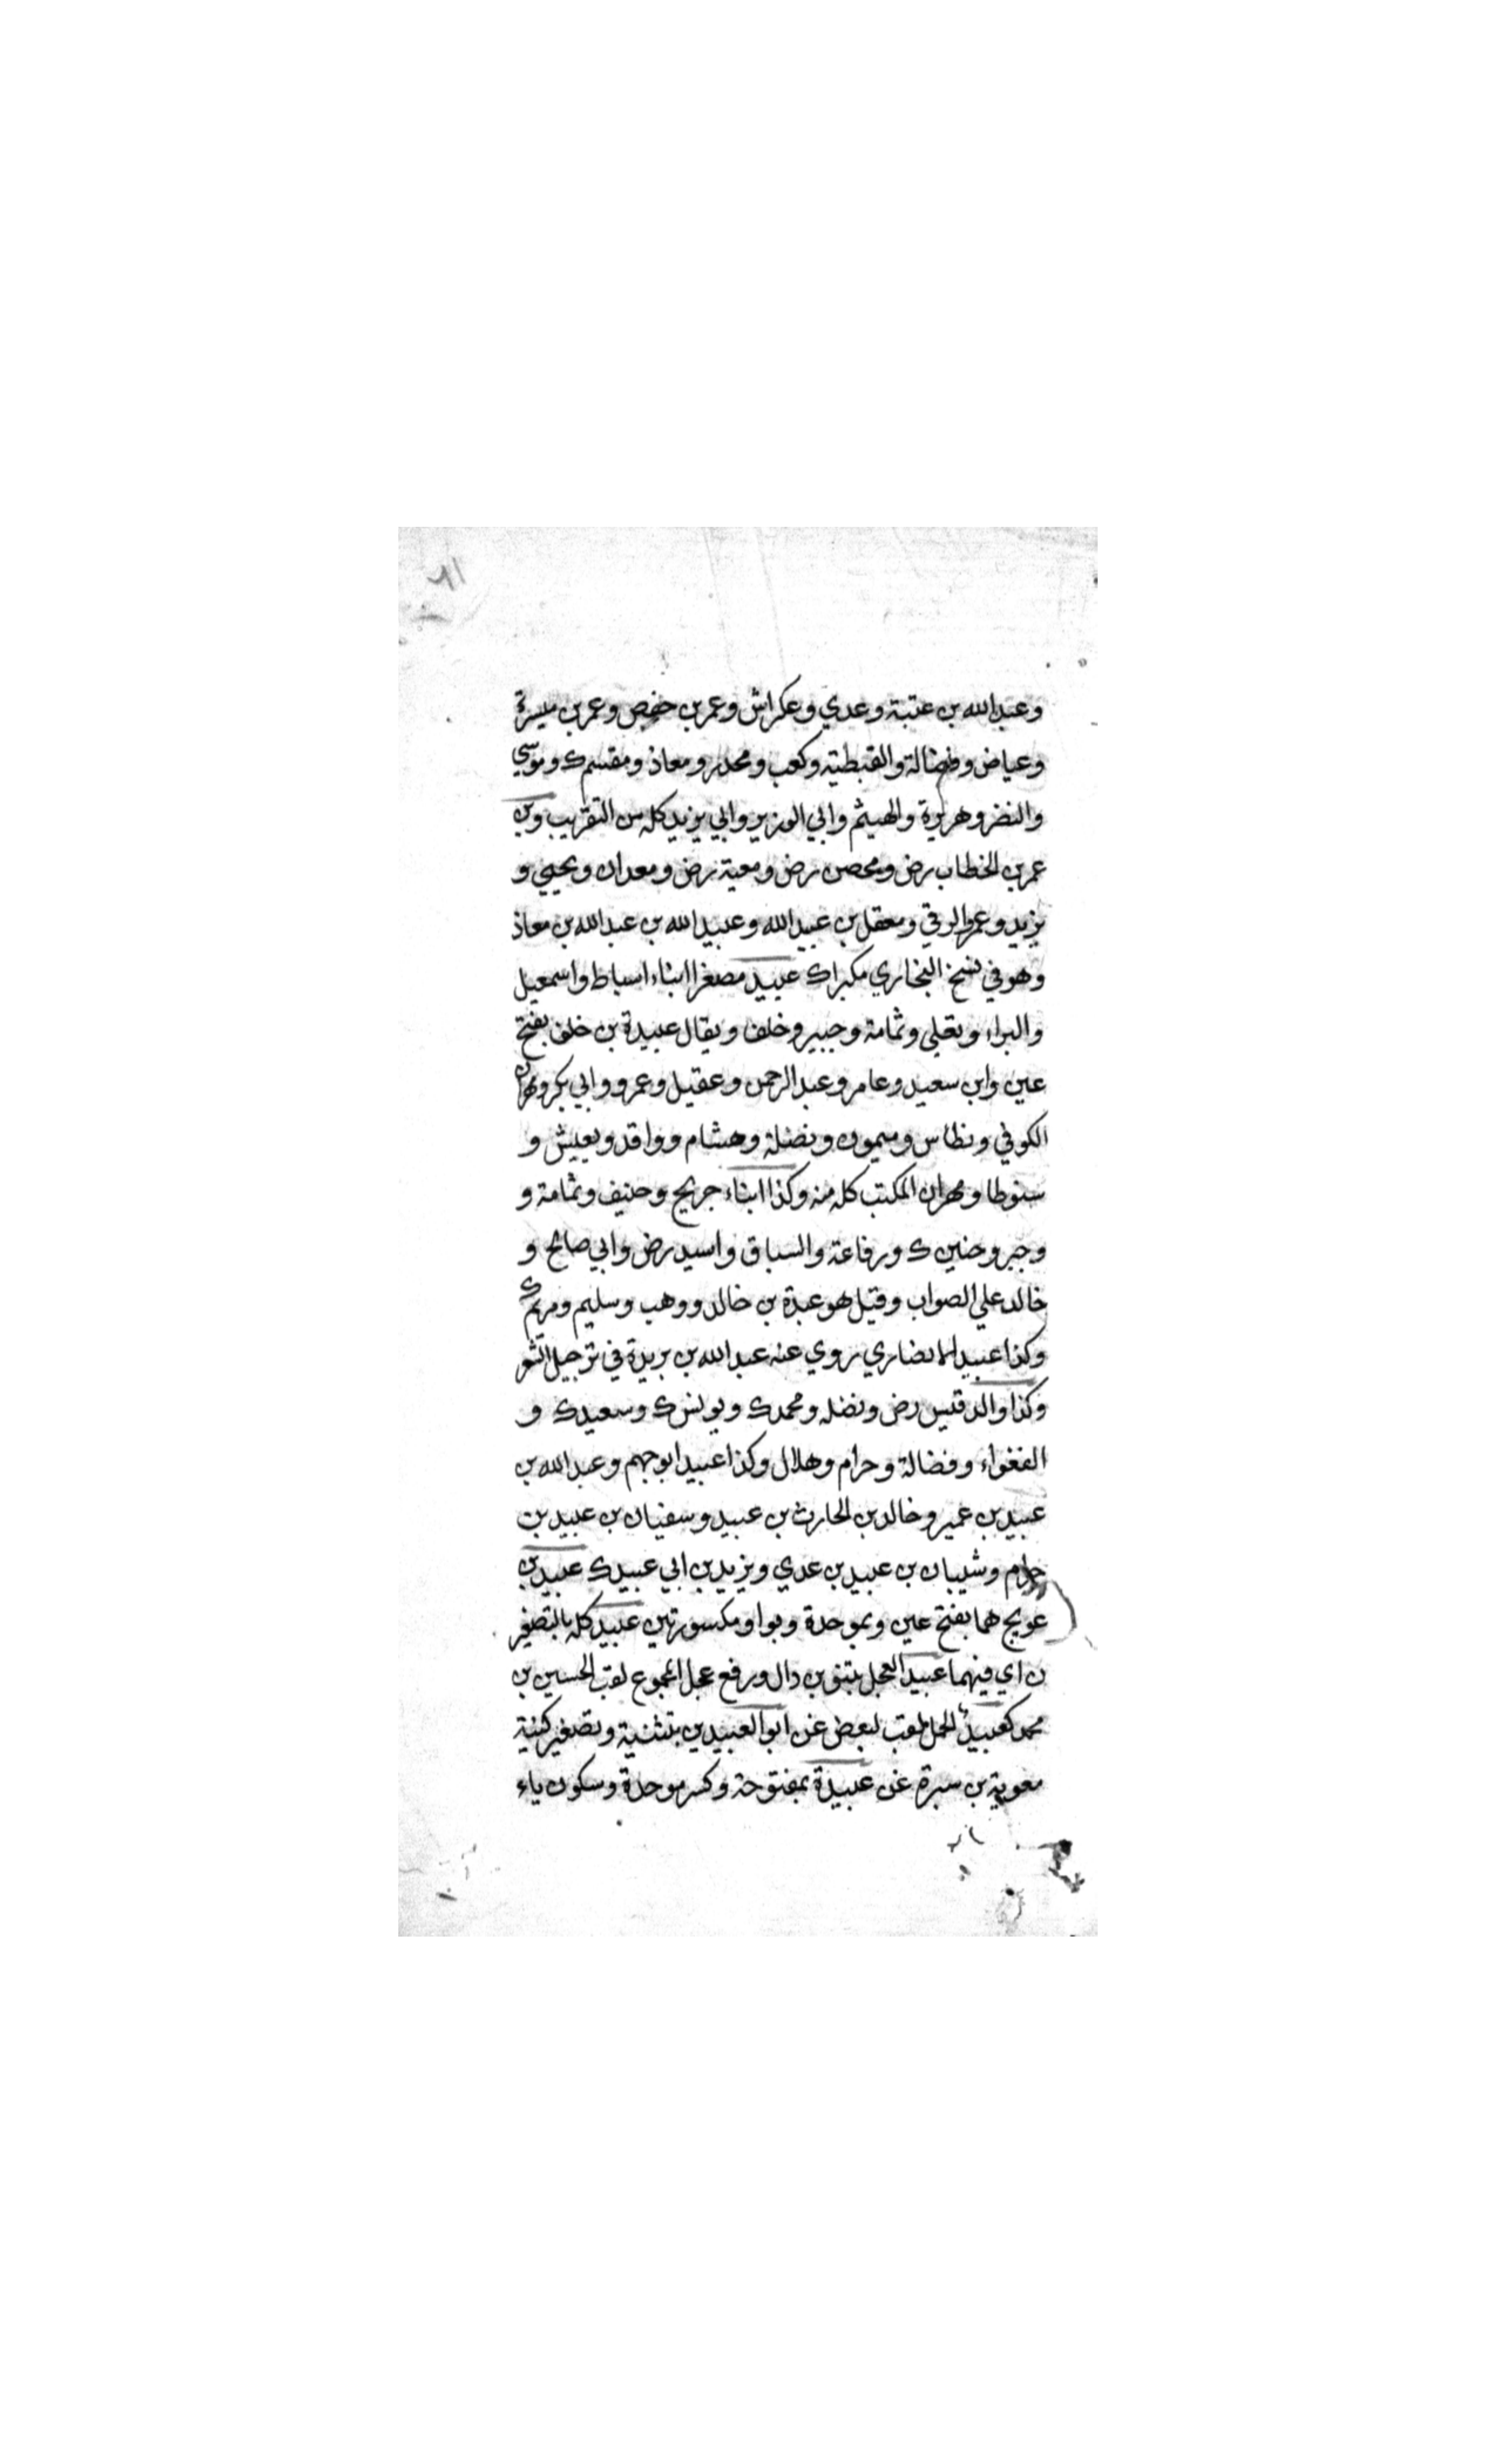 وعبد الله بن عتبة وعدي وعكراش وعمر بن حفص وعمر بن ميسرة
وعياض وفضالة والقبطية وكعب ومحرر ومعاذ ومقسم ك وموسي
والنضر وهريرة والهيثم وابي الوزير وابي يزيد كله من التقريب وبن
عمر بن الخطاب رض ومحصن رض ومعية رض ومعدان ويحيي و
يزيد وعمرو الرقي ومعقل بن عبيد الله وعبيد الله بن عبد الله بن معاذ
وهو في نسخ البخاري مكبرا ك عبيد مصغرا ابناء اسباط واسمعيل
والبراء وتعلي وثمامة وجبير وخلف ويقال عبيدة بن خلف بفتح
عين وابن سعيد وعامر وعبد الرحمن وعقيل وعمرو وابي بكر ومهران
الكوفي ونطاس وميمون ونضلة وهشام وواقد ويعيش و
سنوطا ومهران المكتب كله منه وكذا ابناء جريج وحنيف وثمامة و
وجبر وحنين ك ورفاعة والسباق واسيد رض وابي صالح و
خالد علي الصواب وقيل هو عبدة بن خالد ووهب وسليم ومريم ك
وكذا عبيد الانصاري روي عنه عبد الله بن بريدة في ترجيل الشعر
وكذا والد قيس رض ونضله ومحمد ك ويونس ك وسعيد ك و
الفغواء وفضالة وحرام وهلال وكذا عبيد ابو جهم وعبد الله بن
عبيد بن عمير وخالد بن الحارث بن عبيد وسفيان بن عبيد بن
حرام وشيبان بن عبيد بن عدي ويزيد بن ابي عبيد ك عبيد بن
عويج هما بفتح عين وبموحدة وبواو مكسورتين عبيد كله بالتصغير
ن اي فيهما عبيد العجل بتنوين دال ورفع عجل المجموع لقب الحسين بن
محمد كعبيد الحمل لقب لبعض غن ابو العبيدين بتثنية وتصغير كنية
معوية بن سبرة غن عبيدة بمفتوحة وكسر موحدة وسكون ياء